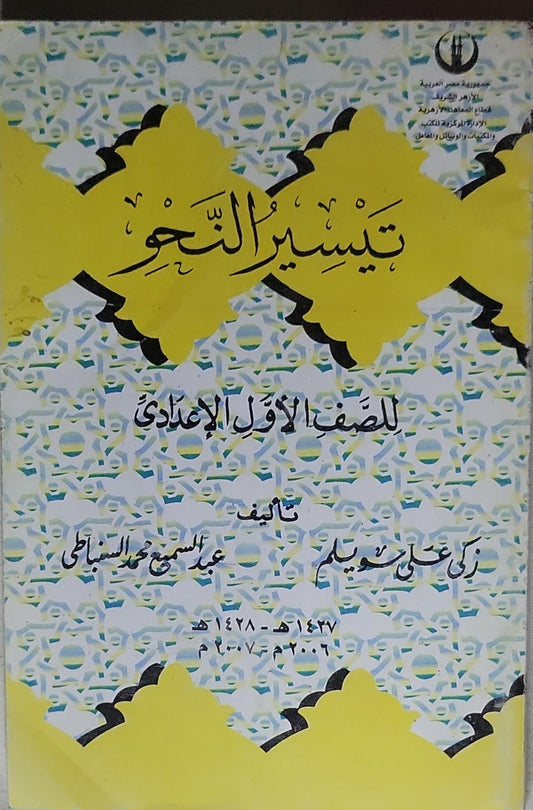 جمهورية مصر العربية
الأزهر الشريف
قطاع المعاهد الأزهرية
الإدارة المركزية للكتب
والمكتبات والوسائل والمعامل
تَيْسِيرُ النَّحْوِ
لِلصَّفِ الأَوَّلِ الإعدادى
تأليف
زكى على سويلم عبد السميع محمد السنباطى
١٤٢٧ هـ - ١٤٢٨ هـ
٢٠٠٦ م - ٢٠٠٧ م